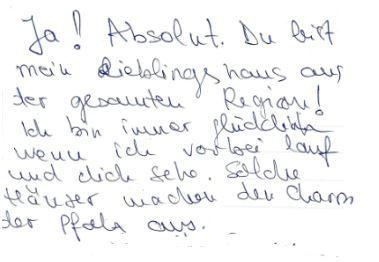 Ja! Absolut. Du bist
mein Lieblingshaus aus
der gesamten Region!
Ich bin immer glücklich
wenn ich vorbei lauf
und dich sehe. Solche
Häuser machen den Charm
der Pfalz aus.